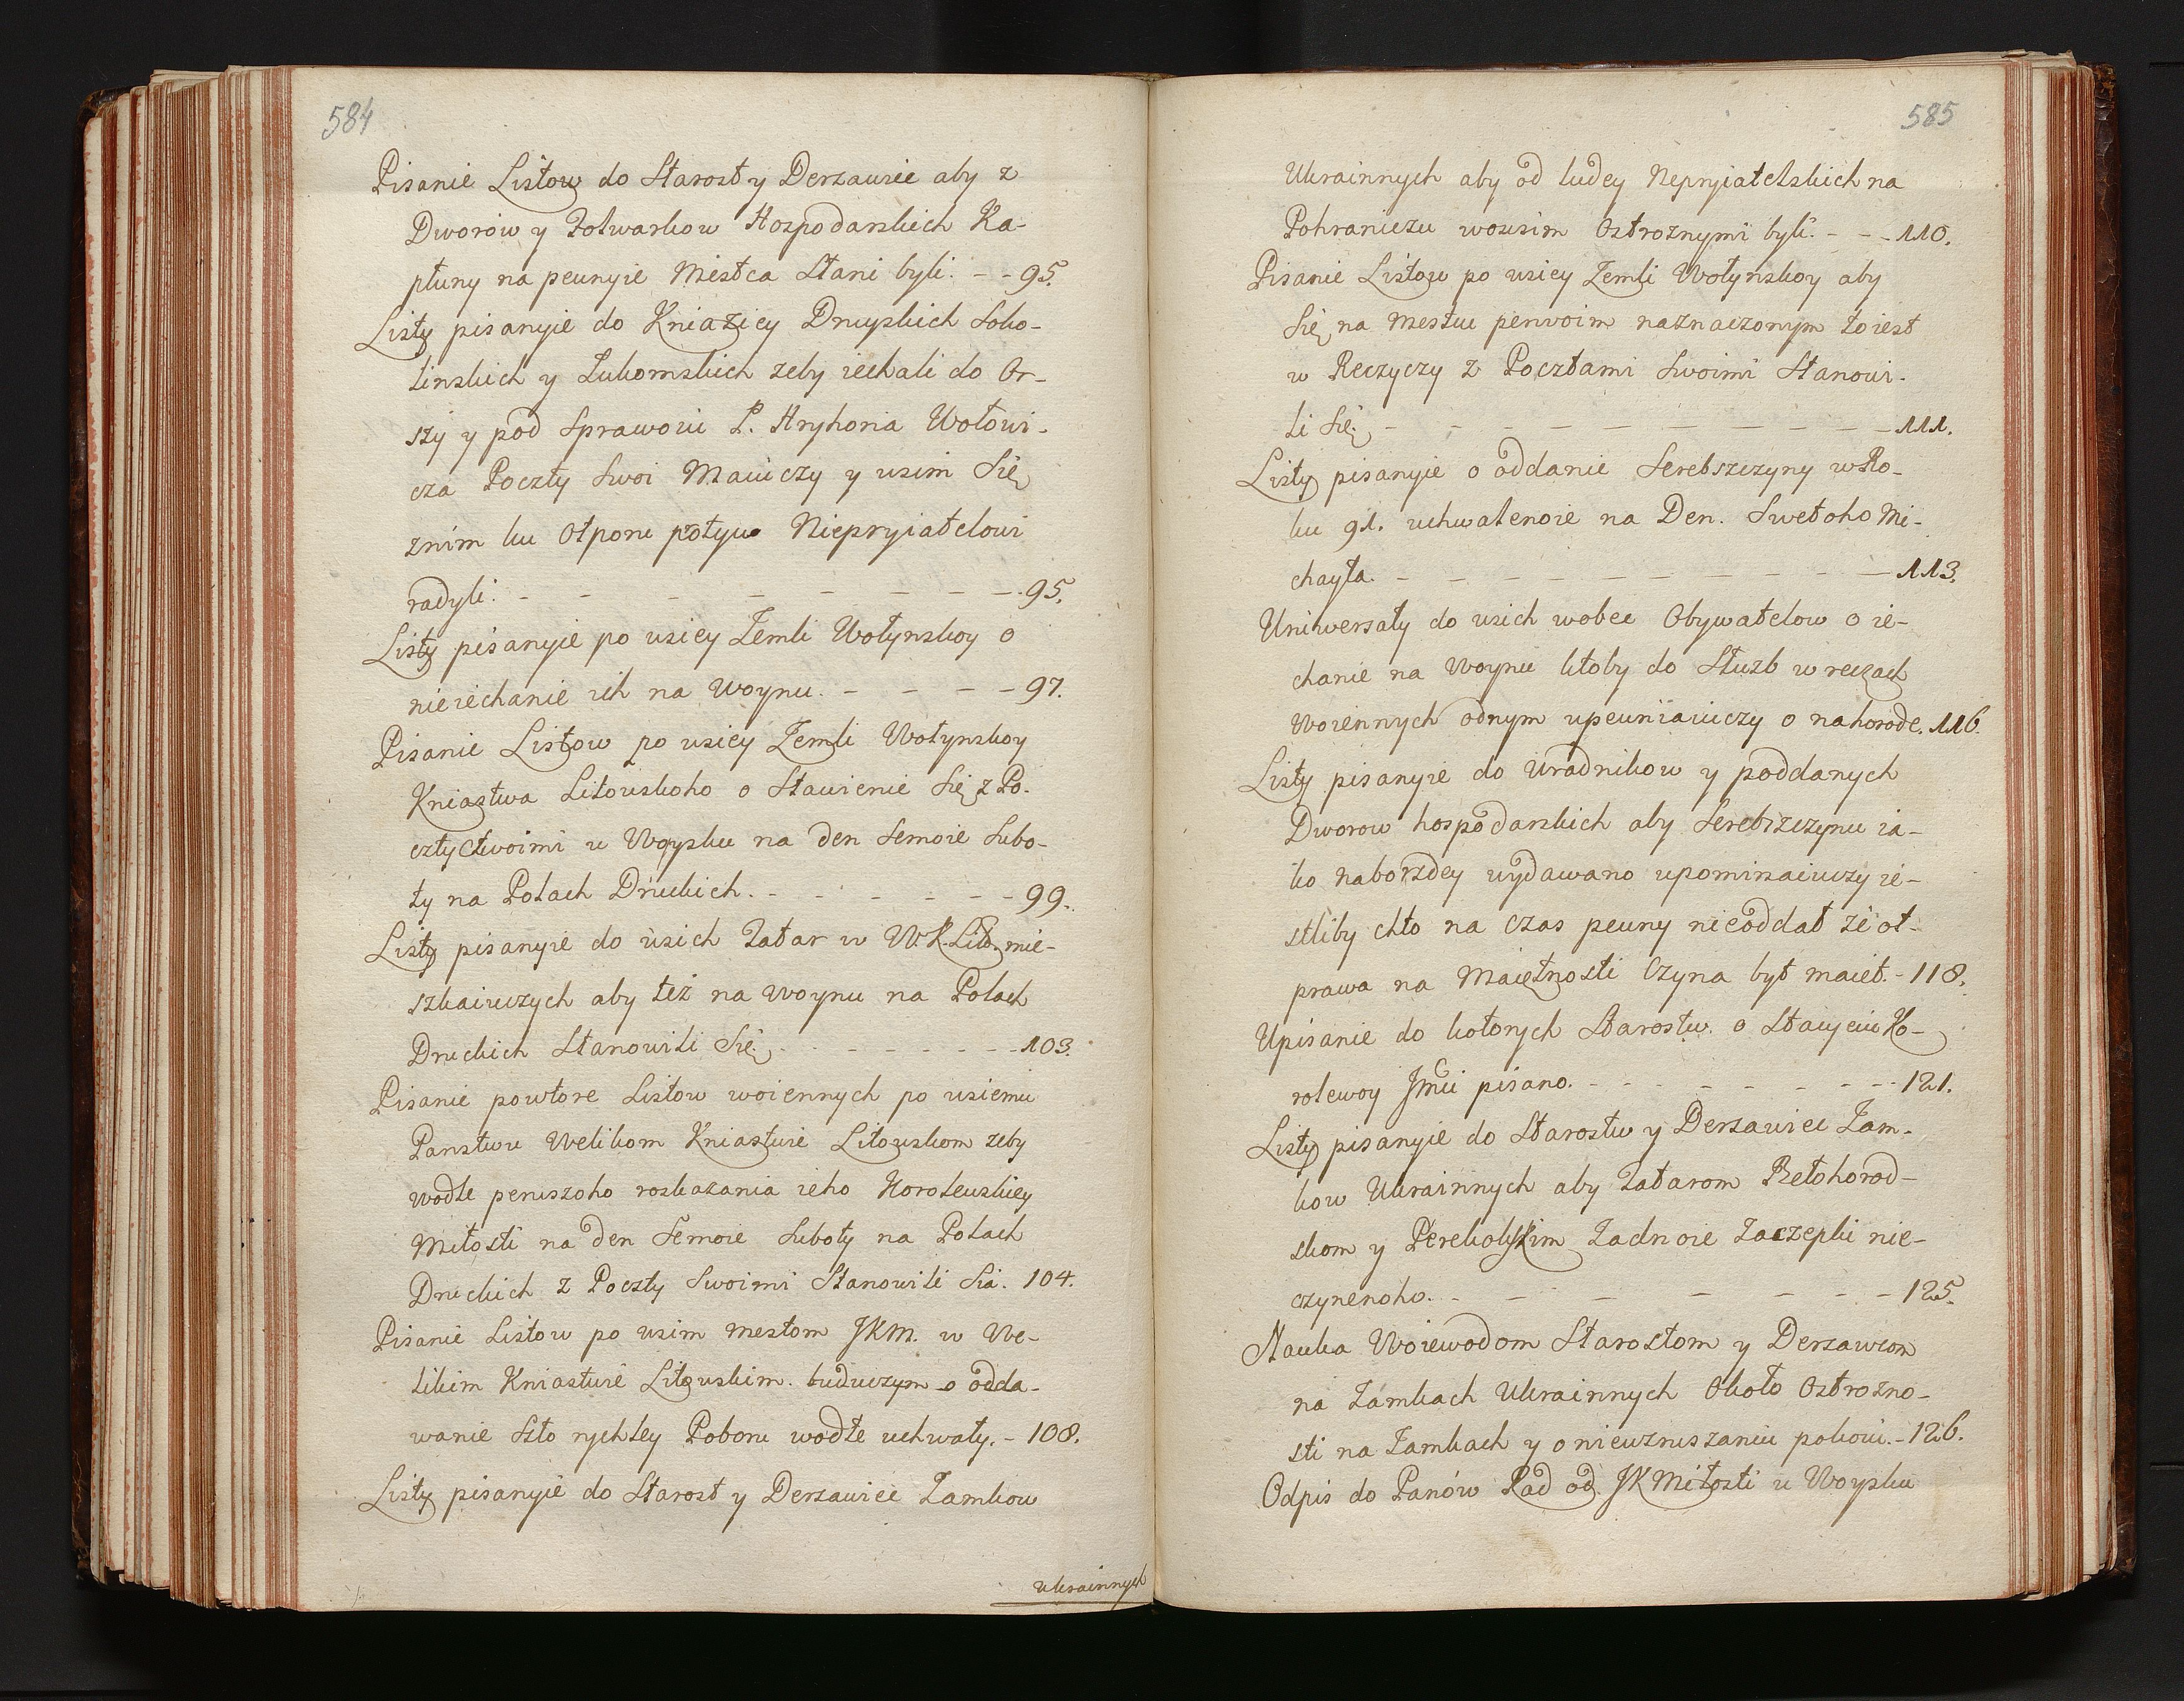 584
Pisanie Listow do Starost y Derzawiec aby z
Dworow y Folwarkow Hospodarskich Ka-
płuny na peunyie Miestca Słani byli. - - 95.
Listy pisanyie do Kniaziey Druyskich Soko-
linskich y Lukomskich zeby iechali do Or-
szy y pod Sprawoiu P. Hryhoria Wołowi-
cza Poczty Swoi Maiuczy y usim Się
znim ku Otporu protyw Niepryiatelowi
radyli. - - - - - - - - 95.
Listy pisanyie po usiey Zemli Wołynskoy o
nieiechanie ich na Woynu. - - - - 97.
Pisanie Listow po usiey Zemli Wołynskoy
Kniastwa Litowskoho o Stawienie Się z Po-
czty Swoimi u Woysku na den Semoie Subo-
ty na Polach Druckich. - - - - - - 99.
Listy pisanyie do usich Tatar w W.K.Lito. mie-
szkaiuczych aby też na Woynu na Polach
Druckich Stanowili Się. - - - - - - 103.
Pisanie powtore Listow woiennych po usiemu
Panstwu Welikom Kniastwie Litowskom zeby
wodle perwszoho roskazania ieho Korolewskiey
Miłosti na den Semoie Suboty na Polach
Druckich z Poczty Swoimi Stanowili Sia. 104.
Pisanie Listow po usim mestom JKM. w We-
likim Kniastwie Litowskim. buduczym o odda-
wanie Sto rychley Poboru wodle uchwały. - 108.
Listy pisanyie do Starost y Derzawiec Zamkow
Ukrainnych
585
Ukrainnych aby od ludey Nepryiatelskich na
Pohraniczu wousim Ostroznymi byli. - - - 110.
Pisanie Listow po usiey Zemli Wołynskoy aby
Się na Mestcu perwoim naznaczonym toiest
w Reczyczy z Pocztami Swoimi Stanowi-
li Się. - - - - - - - - - - 111.
Listy pisanyie o oddanie Serebszczyny w Ro-
ku 91. uchwalenoie na Den. Swetoho Mi-
chayła. - - - - - - - - - - 113.
Uniwersały do usich wobec Obywatelow o ie-
chanie na Woynu ktoby do Służb w reczach
Woiennych odnym upeuniaiuczy o nahorode. 116.
Listy pisanyie do Uradnikow y poddanych
Dworow hospodarskich aby Serebszczynu ia-
ko naborzdey wydawano upominaiuczy ie-
stliby chto na czas peuny nieoddał że ot-
prawa na Maiętnosti Czyna być maiet. - 118.
Upisanie do kotorych Starostw. o Stacyeiu Ko-
rolewoy Jmci pisano. - - - - - - - 121.
Listy pisanyie do Starostw y Derzawiec Zam-
kow Ukrainnych aby Tatarom Bełohorod-
skom y Perekolskim Zadnoie Zaczepki nie-
czynenoho. - - - - - - - 125.
Nauka Woiewodom Starostom y Derzawcom
na Zamkach Ukrainnych Około Ostrozno-
sti na Zamkach y o niewzruszaniu pokoiu. - 126.
Odpis do Panów Rad od JKMiłosti u Woysku